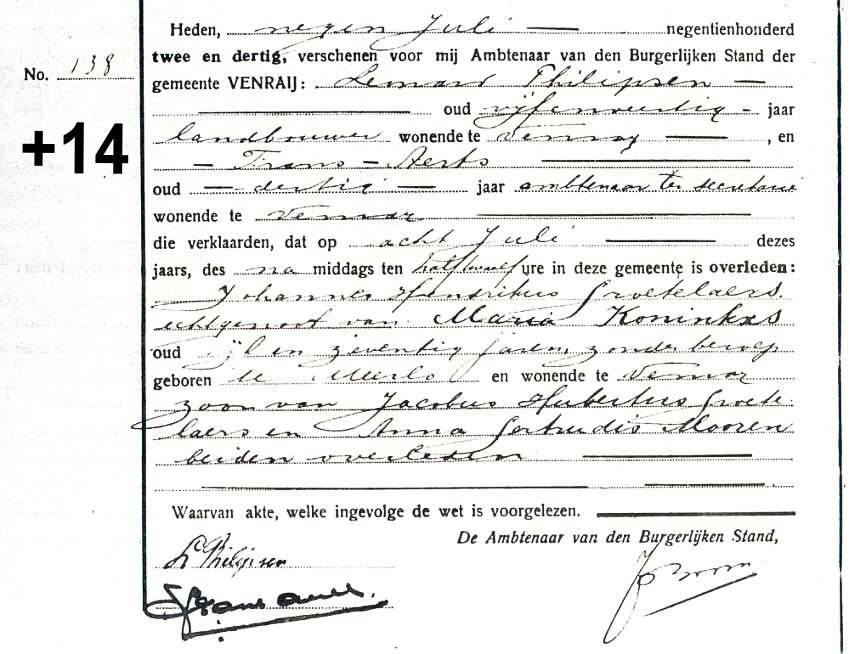 Heden, negen Juli — negentienhonderd
twee en dertig, verschenen voor mij Ambtenaar van den Burgerlijken Stand der
No. 138
gemeente VENRAIJ: Lemard Philipsen —
oud vijfenveertig - jaar
landbouwer wonende te Venray — , en
+14
— Frans — Aerts —
oud — dertig — jaar ambtenaar ter secretarie
wonende te Venray —
die verklaarden, dat op acht Juli — dezes
jaars, des na middags ten half twaalf ure in deze gemeente is overleden:
Johannes Hendrikus Groetelaers,
echtgenoot van Maria Koninkxs
oud en zeventig jaren, zonder beroep
geboren te Meerlo en wonende te Venray
zoon van Jacobus Hubertus Groete-
laers en Anna Gertrudis Mooren
beiden overleden —
Waarvan akte, welke ingevolge de wet is voorgelezen. —
De Ambtenaar van den Burgerlijken Stand,
L Philipsen